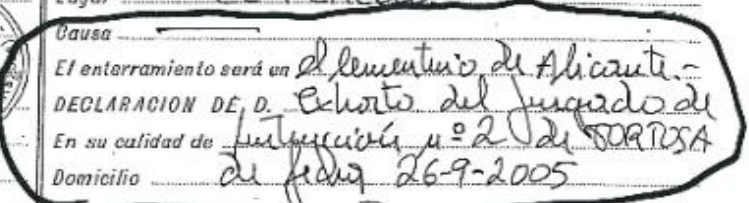 Causa
El enterramiento será en el Cementerio de Alicante.-
DECLARACION DE D. Exhorto del Juzgado de
En su calidad de Instrucción nº 2 de TORTOSA
Domicilio de fecha 26-9-2005